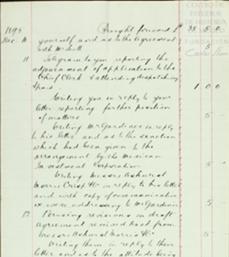 1893 Brought forward £ 38 5 0
Dec. 11 yourself and as to the Agreement
with Mr 5
11 Telegram to you reporting the
adjournment of application to the
Chief Clerk & attending despatching
paid 1 0 0
Writing you in reply to your
letter reporting further position
of matters 5
Writing Mr Gardiner in reply
to his letter and as to the sanction
which had been given to the
arrangement by the Mexican
Corporation 5
Writing Messrs
Morris Crisp &Co in reply to his letter
and with copy of communication
we were addressing to Mr Gardiner 5
12 Perusing revisions in draft
Agreement received back from
Messrs Morris &Co
Writing them in reply to their
letter and as to the attitude being